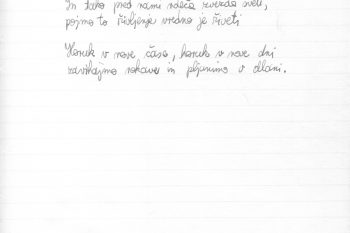 In tako pred nami rdeča zvezda sveti,
pojmo to življenje vredno je živeti
Horuk v nove čase, horuk v nove dni
zavihajmo rokave in pljunimo v dlani.